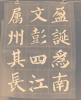 盈誕爲南
文彭四江
属州其長